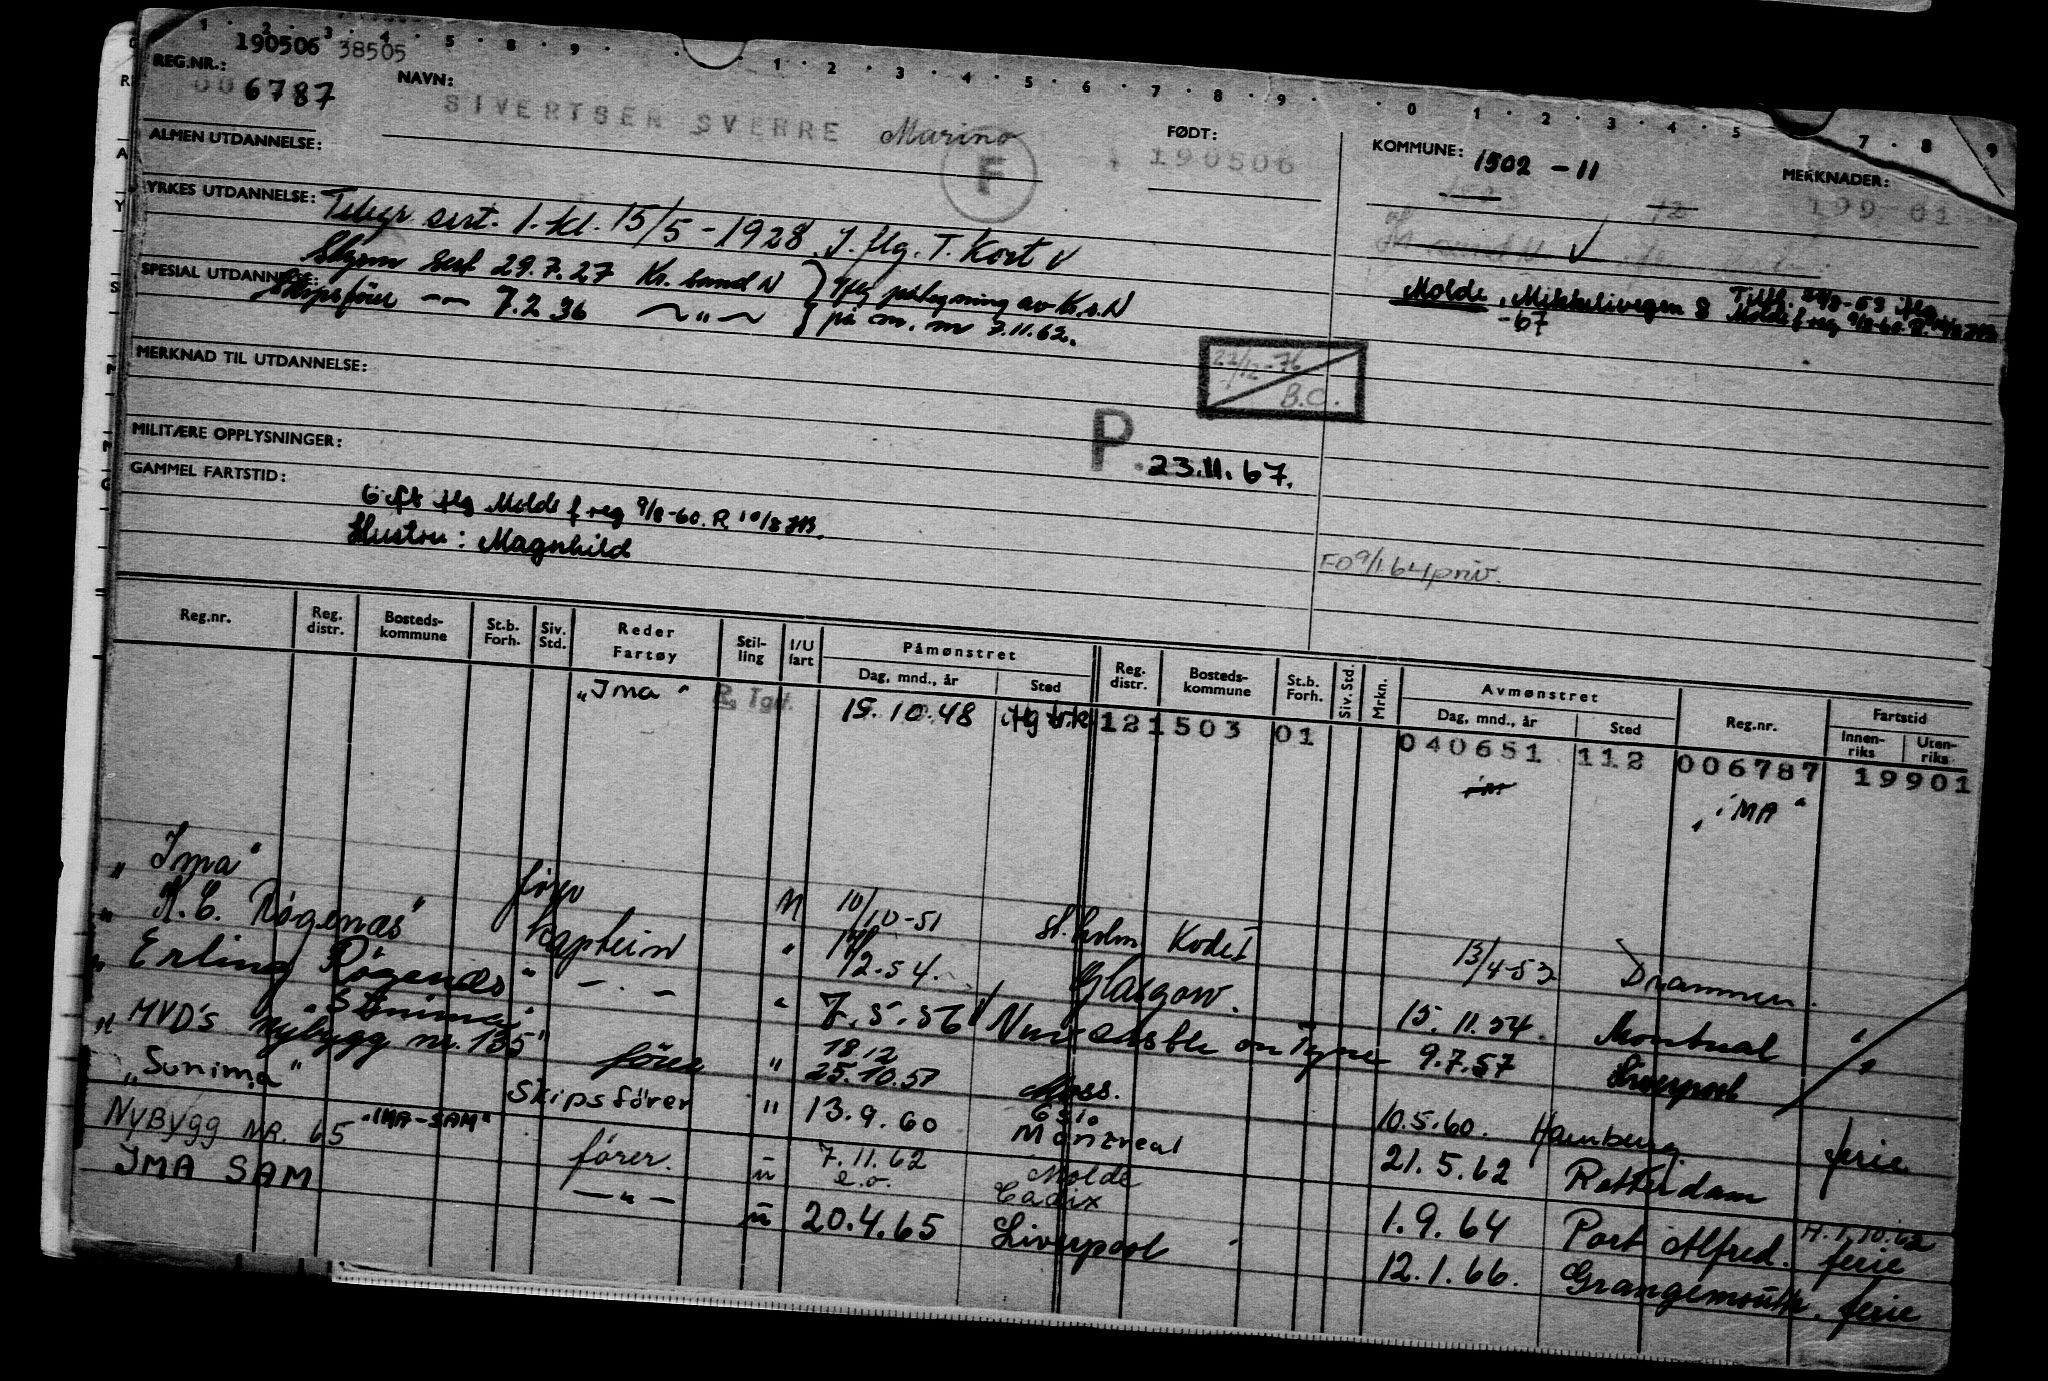 190506 38505
REG.NR.: 006787
NAVN: SIVERTSEN SVERRE Marino
F
FØDT: 190506
KOMMUNE: 1502 - 11
MERKNADER: 199 01
ALMEN UTDANNELSE:
YRKES UTDANNELSE: Telegr sert. 1. kl. 15/5 - 1928 I. flg. T. Kort V
Styrm Sert 29.7.27 Kr. sund N
SPESIAL UTDANNELSE: Skipsfører 7.2 36 — " —
iflg påtegning av Kr.s.N
på m. m 7.11.62.
Molde, Mikkelivegen 8
- 67
MERKNAD TIL UTDANNELSE:
22/12-76
B.O.
MILITÆRE OPPLYSNINGER:
P. 23.11.67.
GAMMEL FARTSTID:
Gift iflg Molde f reg 9/8-60. R 10/8 HB.
Hustru: Magnhild
FO 9/1 64 priv.
Reg.nr. Reg. distr. Bosteds-kommune St.b. Forh. Siv. Std. Reder Fartøy Stil-ling I/U fart Påmønstret Dag, mnd., år Sted Reg. distr. Bosteds-kommune St.b. Forh. Siv. Std. Mrkn. Avmønstret Dag, mnd., år Sted Reg.nr. Fartstid Innen-riks Uten-riks
"Ima" 15.10.48 iflg t.k 12 1503 01 040651 112 006787 19901
"IMA"
"Ima" fører N 10/10-51 St.holm Kode I 13/4-53 Drammen.
"K. C. Rogenæs" kaptein " /2.54. Glasgow. 15.11.54. Montreal "
"Erling Rogenæs" — . — " 7.5.56 Newcastle on Tyne 9.7.57 Liverpool "
"Sunima"
" MVD's nybygg nr. 135" fører " 18.12 25.10.57 Moss. Oslo 10.5.60. Hamburg ferie
"Sunima" Skipsfører " 13.9.60 Montreal 21.5.62 Rotterdam
NyBygg NR. 65 "IMA-SAM" fører. u 7.11.62 e.o. Molde Cadix 1.9.64 Port Alfred. H. 1.10.62 ferie
IMA SAM — " — u 20.4.65 Liverpool 12.1.66. Grangemouth. ferie